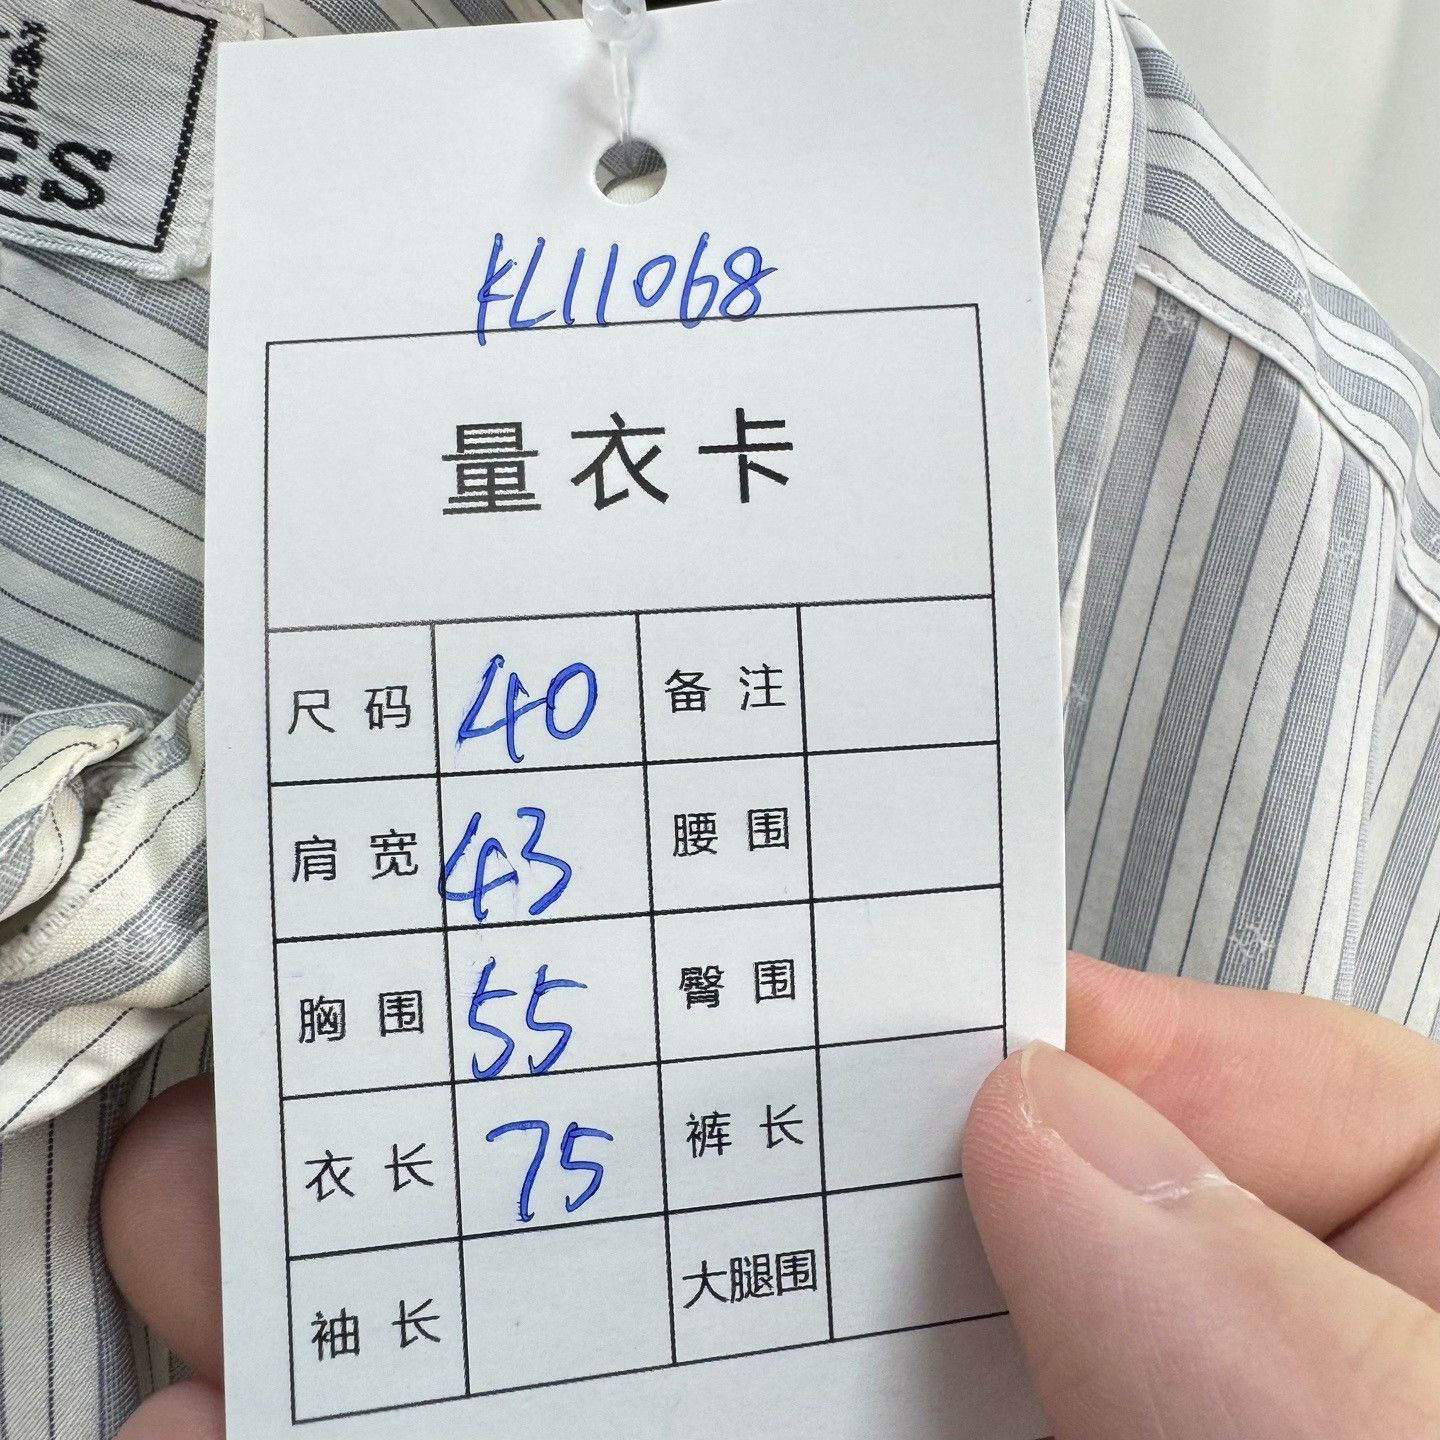 S
KL11068
量衣卡
尺码 40 备注
肩宽 43 腰围
胸围 55 臀围
衣长 75 裤长
袖长 大腿围